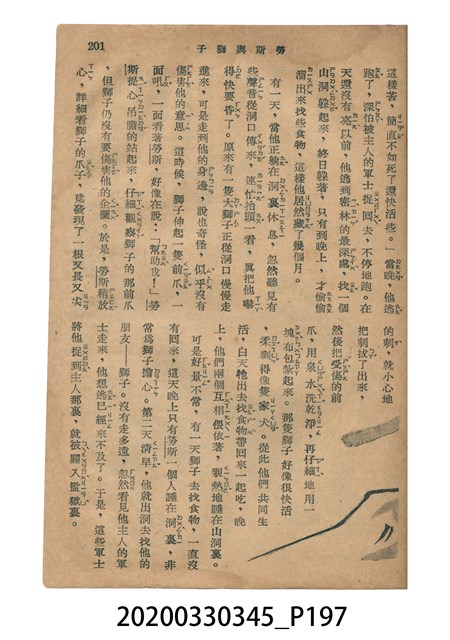 勞斯與獅子
201
這樣苦，簡直不如死了還快活些。一當晚，他逃
跑了，深怕被主人的軍士捉回去，不停地跑。在
天還沒有亮以前，他逃到密林的最深處，找一個
山洞躲起來，終日躲著，只有到晚上，才偷偷
溜出來找些食物，這樣他居然藏了幾個月。
有一天，當他正躺在洞裏休息，忽然聽見有
些聲音從洞口傳來，連忙抬頭一看，眞把他嚇
得快要昏了。原來有一隻大獅子正從洞口慢慢走
進來，可是走到他的身邊，說也奇怪，似乎沒有
傷害他的意思。這時候，獅子伸起一隻前爪，一
面吼，一面看著勞斯，好像在說：「幫助我！」勞
斯提心吊膽的站起來，仔細觀察獅子的那前爪
，但獅子仍沒有要傷害他的企圖。於是，勞斯稍放
心，詳細看獅子的爪子，竟發現了一根又長又尖
的刺，就小心地
把刺拔了出來，
然後把受傷的前
爪，用泉水洗乾淨，再仔細地用一
塊布包紮起來。那隻獅子好像很快活
，柔馴得像隻家犬。從此他們共同生
活，白天牠出去找食物帶回來一起吃，晚
上，他們兩個互相偎依著，親熱地睡在山洞裏。
可是好景不常，有一天獅子去找食物，一直沒
有回來，這天晚上只有勞斯一個人睡在洞裏，非
常爲獅子擔心。第二天淸早，他就出洞去找他的
朋友——獅子。沒有走多遠，忽然看見他主人的軍
士走來，他想逃已經來不及了。于是，這些軍士
將他捉到主人那裏，就被關入監獄裏。
20200330345_P197